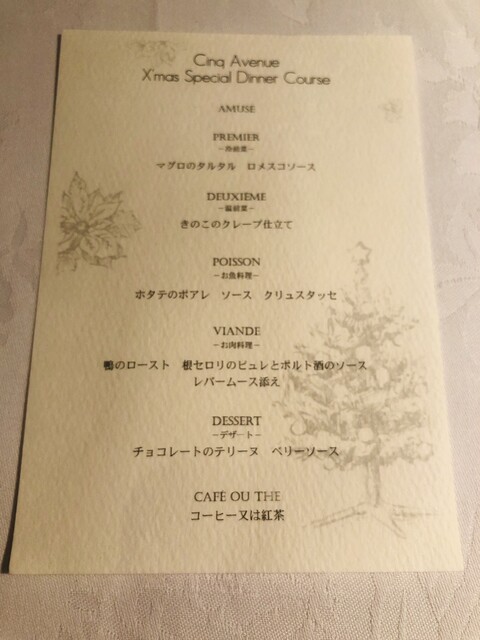 Cinq Avenue
X'mas Special Dinner Course
AMUSE
PREMIER
－冷前菜－
マグロのタルタル　ロメスコソース
DEUXIEME
－温前菜－
きのこのクレープ仕立て
POISSON
－お魚料理－
ホタテのポアレ　ソース　クリュスタッセ
VIANDE
－お肉料理－
鴨のロースト　根セロリのピュレとポルト酒のソース
レバームース添え
DESSERT
－デザート－
チョコレートのテリーヌ　ベリーソース
CAFÉ OU THE
コーヒー又は紅茶